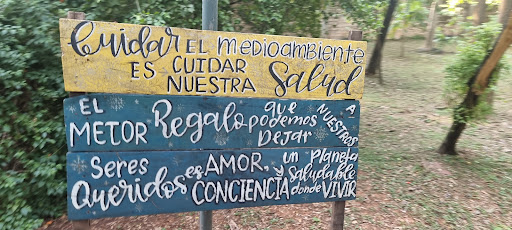 Cuidar EL medioambiente
ES CUIDAR
NUESTRA Salud
EL MEJOR Regalo que podemos DEJAR A NUESTROS
Seres Queridos es AMOR, CONCIENCIA un Planeta saludable donde VIVIR